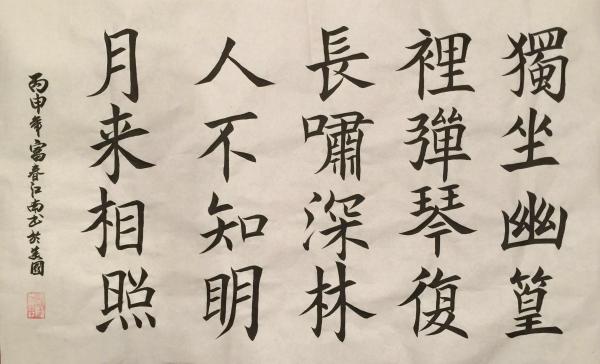 獨坐幽篁
裡彈琴復
長嘯深林
人不知明
月来相照
丙申年富春江南書於美國